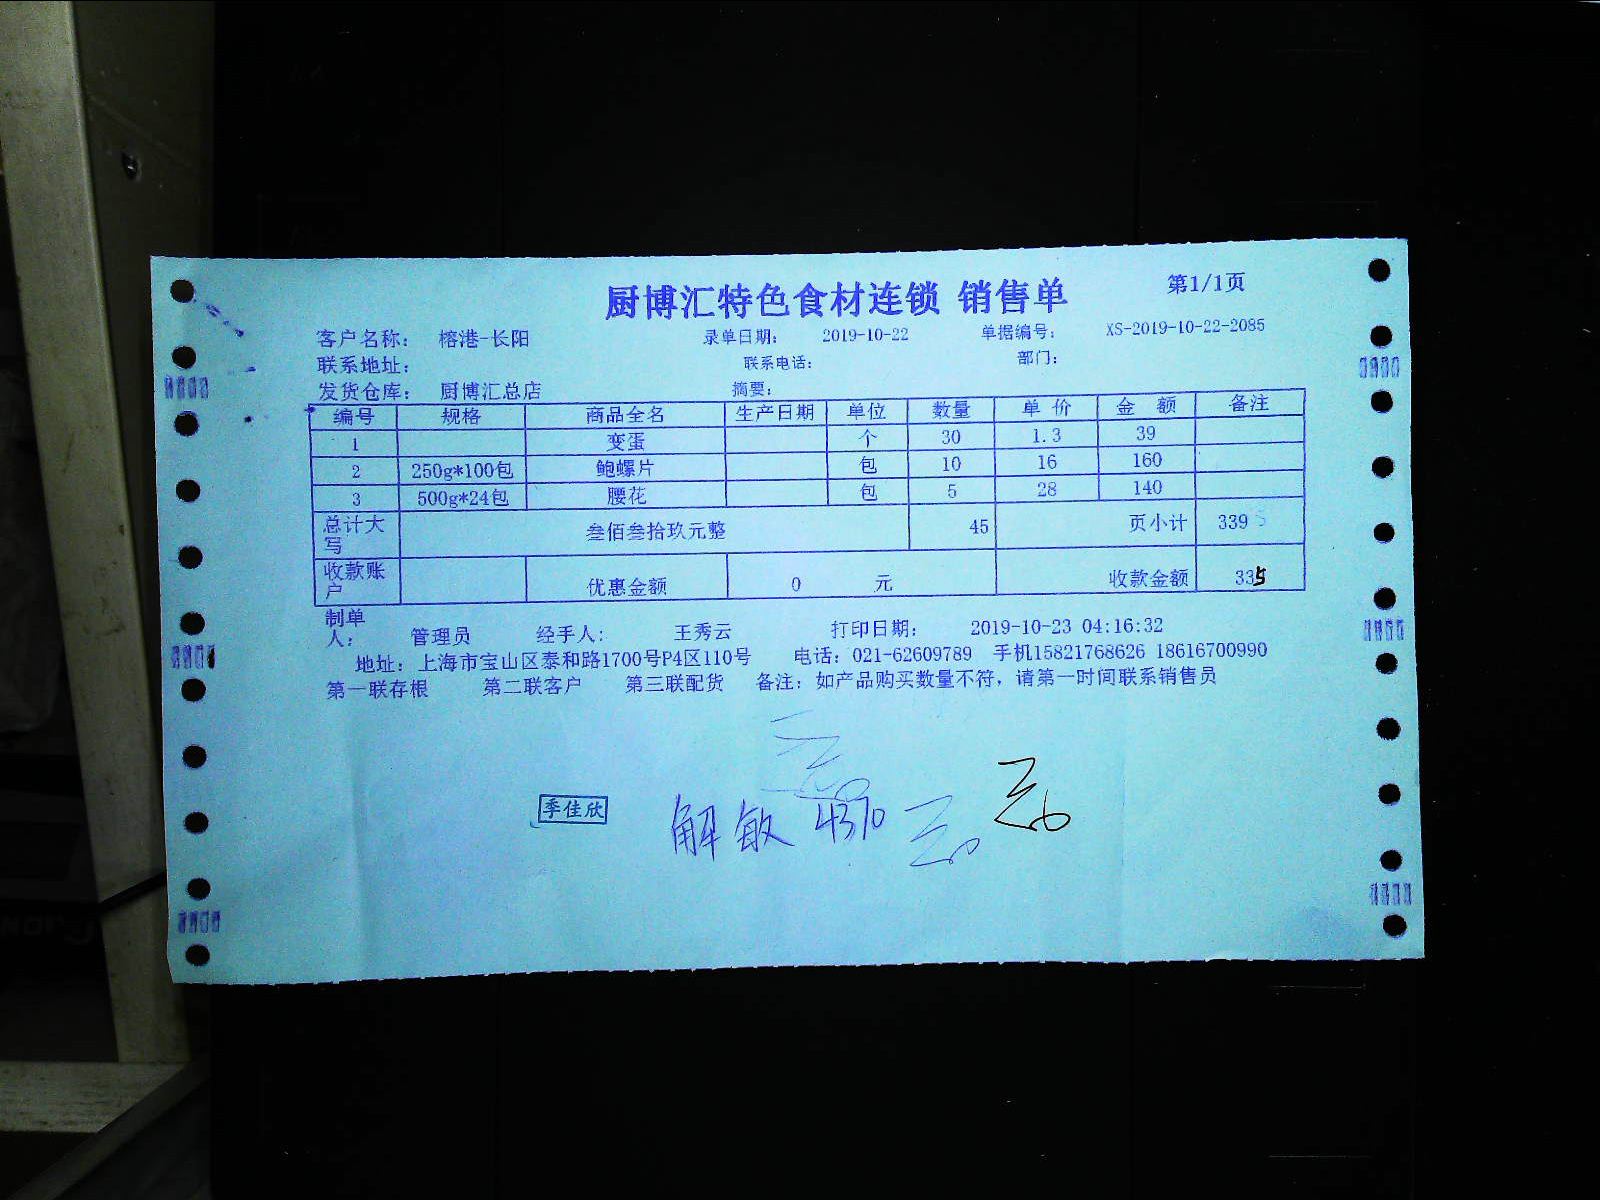 厨博汇特色食材连锁 销售单 第1/1页
客户名称： 榕港-长阳 录单日期： 2019-10-22 单据编号： XS-2019-10-22-2085
联系地址： 联系电话： 部门：
发货仓库： 厨博汇总店 摘要：
编号 规格 商品全名 生产日期 单位 数量 单价 金额 备注
1 变蛋 个 30 1.3 39
2 250g*100包 鲍螺片 包 10 16 160
3 500g*24包 腰花 包 5 28 140
总计大写 叁佰叁拾玖元整 45 页小计 339 5
收款账户 优惠金额 0 元 收款金额 335
制单人： 管理员 经手人： 王秀云 打印日期： 2019-10-23 04:16:32
地址： 上海市宝山区泰和路1700号P4区110号 电话：021-62609789 手机15821768626 18616700990
第一联存根 第二联客户 第三联配货 备注：如产品购买数量不符，请第一时间联系销售员
季佳欣 解敏 4370